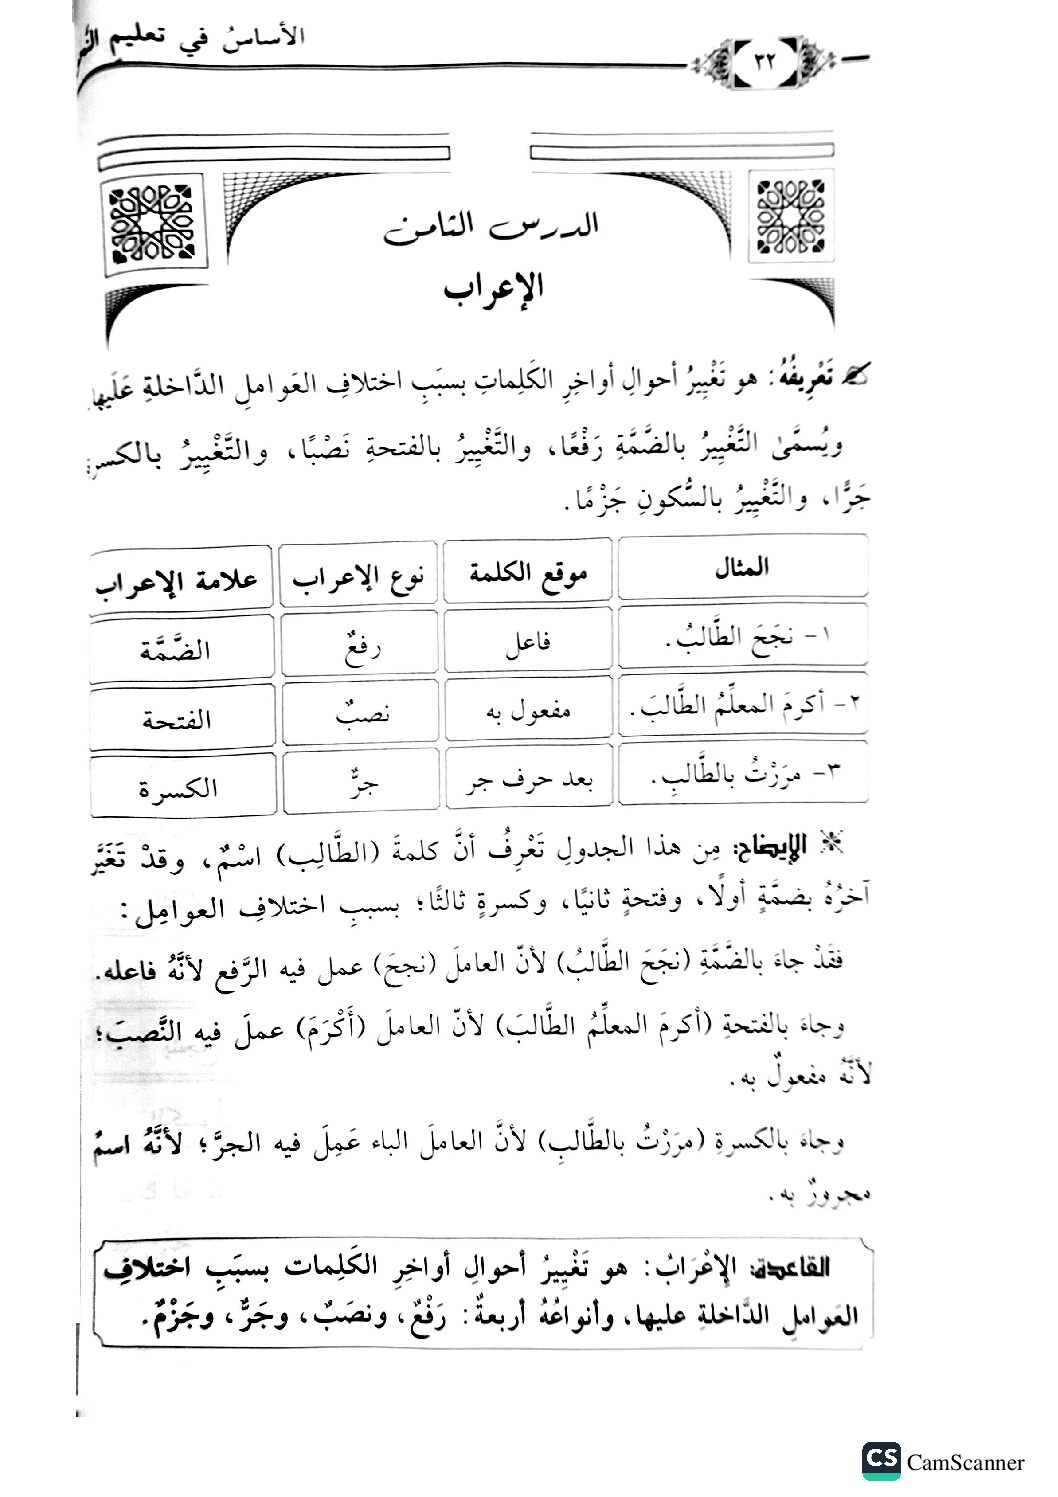 الأساسُ في تعليم
٣٢
الدرس الثامن
الإعراب
تَعْرِيفُهُ: هو تَغْيِيرُ أحوالِ أواخِرِ الكَلِماتِ بسبَبِ اختلافِ العَواملِ الدَّاخلةِ عَلَيها
ويُسمَّىٰ التَّغْيِيرُ بالضَّمَّةِ رَفْعًا، والتَّغْيِيرُ بالفتحةِ نَصْبًا، والتَّغْيِيرُ بالكسرةِ
جَرًّا، والتَّغْيِيرُ بالسُّكونِ جَزْمًا.
المثال موقع الكلمة نوع الإعراب علامة الإعراب
١- نجَحَ الطَّالبُ. فاعل رفعٌ الضَّمَّة
٢- أكرمَ المعلِّمُ الطَّالبَ. مفعول به نصبٌ الفتحة
٣- مرَرْتُ بالطَّالبِ. بعد حرف جر جرٌّ الكسرة
الإيضاح: مِن هذا الجدولِ تَعْرِفُ أنَّ كلمةَ (الطَّالِب) اسْمٌ، وقدْ تَغَيَّر
آخرُهُ بضمَّةٍ أولًا، وفتحةٍ ثانيًا، وكسرةٍ ثالثًا؛ بسببِ اختلافِ العوامِل:
فقَدْ جاءَ بالضَّمَّةِ (نجَحَ الطَّالبُ) لأنّ العاملَ (نجحَ) عمل فيه الرَّفع لأنَّهُ فاعله.
وجاءَ بالفتحةِ (أكرمَ المعلِّمُ الطَّالبَ) لأنّ العاملَ (أَكْرَمَ) عملَ فيه النَّصبَ؛
لأنَّهُ مفعولٌ به.
وجاءَ بالكسرةِ (مرَرْتُ بالطَّالبِ) لأنَّ العاملَ الباء عَمِلَ فيه الجرَّ؛ لأنَّهُ اسمٌ
مجرورٌ به.
القاعدة: الإعْرَابُ: هو تَغْيِيرُ أحوالِ أواخِرِ الكَلِمات بسبَبِ اختلافِ
العَواملِ الدَّاخلةِ عليها، وأنواعُهُ أربعةٌ: رَفْعٌ، ونصَبٌ، وجَرٌّ، وجَزْمٌ.
CS CamScanner